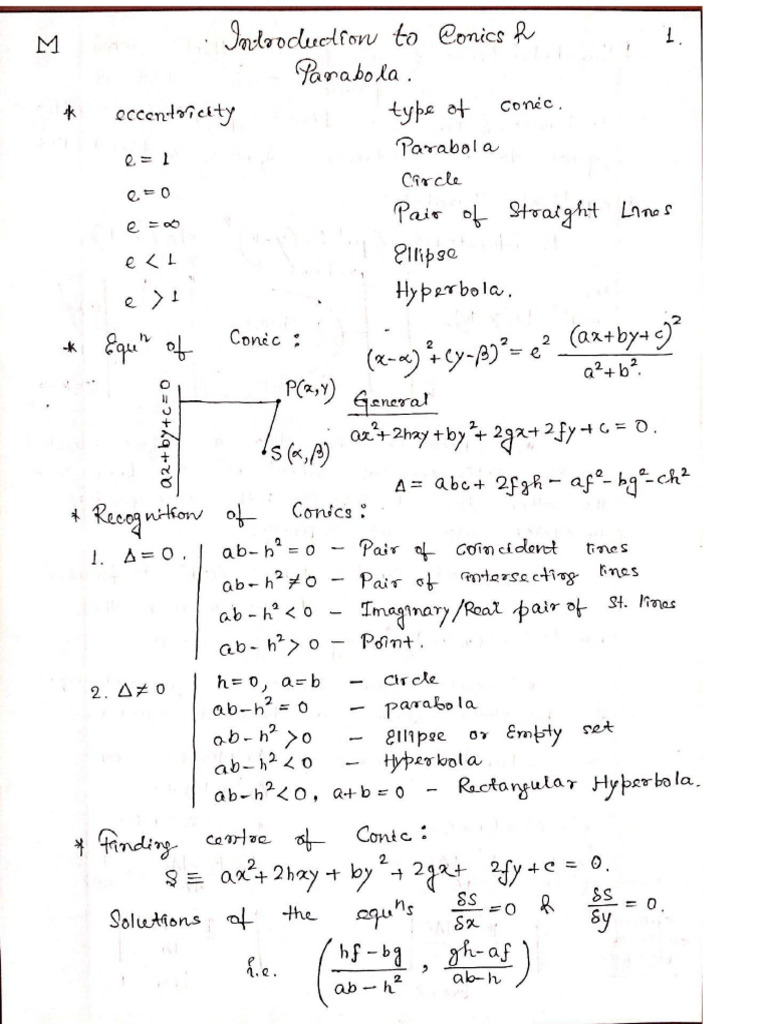 M Introduction to Conics & 1.
Parabola.
* eccentricity type of conic.
e = 1 Parabola
e = 0 Circle
e = ∞ Pair of Straight Lines
e < 1 Ellipse
e > 1 Hyperbola.
* Equⁿ of Conic : (x-α)²+(y-β)² = e² (ax+by+c)²/a²+b².
ax+by+c=0 P(x,y) General
S(α,β) ax²+2hxy+by²+2gx+2fy+c = 0.
Δ = abc + 2fgh - af² - bg² - ch²
* Recognition of Conics :
1. Δ = 0. ab-h² = 0 - Pair of coincident lines
ab-h² ≠ 0 - Pair of intersecting lines
ab-h² < 0 - Imaginary/Real pair of St. lines
ab-h² > 0 - Point.
2. Δ ≠ 0 h=0, a=b - circle
ab-h² = 0 - parabola
ab-h² > 0 - Ellipse or Empty set
ab-h² < 0 - Hyperbola
ab-h² < 0, a+b = 0 - Rectangular Hyperbola.
* Finding centre of Conic :
S ≡ ax²+2hxy + by² + 2gx + 2fy + c = 0.
Solutions of the equⁿs δS/δx = 0 & δS/δy = 0.
i.e. (hf-bg/ab-h², gh-af/ab-h)